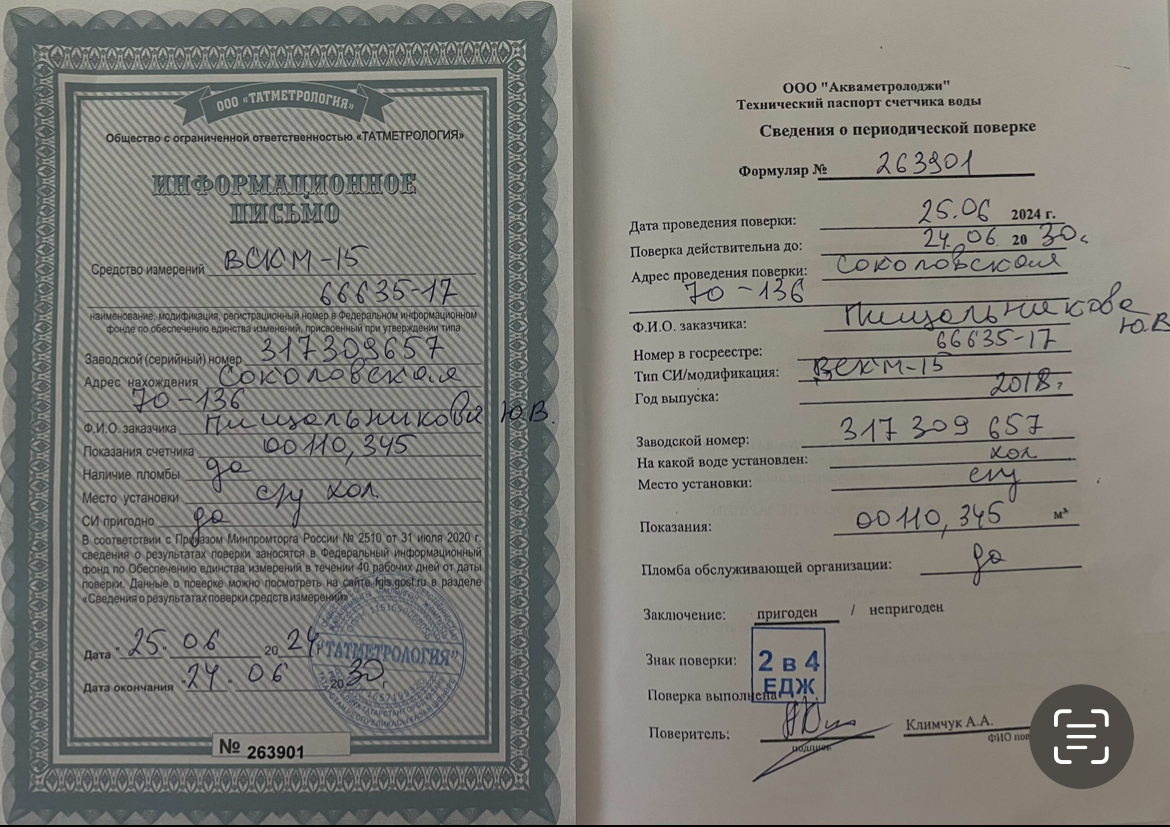 ООО «ТАТМЕТРОЛОГИЯ»
Общество с ограниченной ответственностью «ТАТМЕТРОЛОГИЯ»
ИНФОРМАЦИОННОЕ
ПИСЬМО
Средство измерений ВСКМ-15
66635-17
наименование, модификация, регистрационный номер в Федеральном информационном
фонде по обеспечению единства изменений, присвоенный при утверждении типа
Заводской (серийный) номер 317309657
Адрес нахождения Соколовская
70-136
Ф.И.О. заказчика Пищальникова Ю.В.
Показания счетчика 00110,345
Наличие пломбы да
Место установки с/у хол
СИ пригодно да
В соответствии с Приказом Минпромторга России № 2510 от 31 июля 2020 г.
сведения о результатах поверки заносятся в Федеральный информационный
фонд по Обеспечению единства измерений в течении 40 рабочих дней от даты
поверки. Данные о поверке можно посмотреть на сайте fgis.gost.ru в разделе
«Сведения о результатах поверки средств измерений».
Дата "25. 06 2024 г
Дата окончания "24. 06 2030 г
"ТАТМЕТРОЛОГИЯ"
№ 263901
ООО "Акваметролоджи"
Технический паспорт счетчика воды
Сведения о периодической поверке
Формуляр № 263901
Дата проведения поверки: 25.06 2024 г.
Поверка действительна до: 24. 06. 20 30г
Адрес проведения поверки: Соколовская
70-136
Ф.И.О. заказчика: Пищальникова
Ю.В
Номер в госреестре: 66635-17
Тип СИ/модификация: ВСКМ-15
Год выпуска: 2018г
Заводской номер: 317 309 657
На какой воде установлен: хол
Место установки: с/у
Показания: 00110,345 м³
Пломба обслуживающей организации: да
Заключение: пригоден / непригоден
Знак поверки: 2 в 4
ЕДЖ
Поверка выполнена
Поверитель: Климчук А.А.
подпись ФИО пов